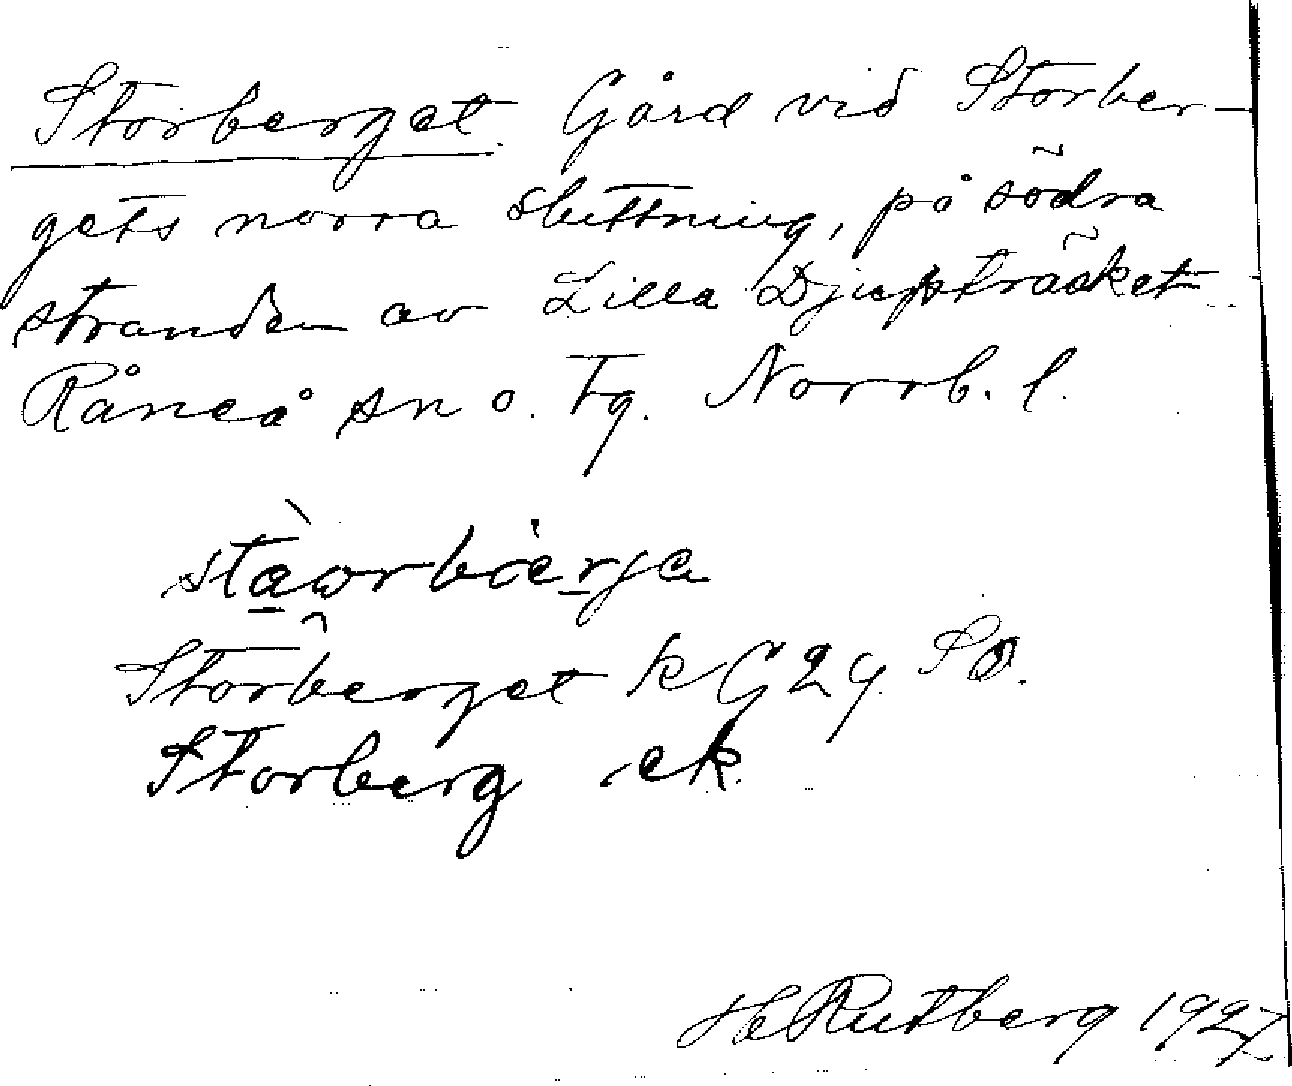 Storberget. Gård vid Storber-
gets norra sluttning, på södra
stranden av Lilla Djupträsket
Råneå sn o. tg. Norrb. l.
Storberget k G 29 
Storberg ek.
H Rutberg 1927